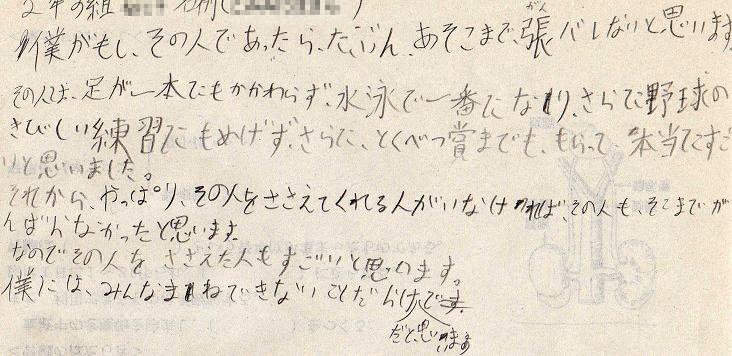 2年の組 名前( )
僕がもし、その人であったら、たぶん、あそこまで、張バしないと思います
その人は、足が一本にもかかわらず、水泳で一番になり、さらに野球の
きびしい練習にもめげず、さらに、とくべつ賞までも、もらって、本当にすご
いと思いました。
それから、やっぱり、その人をささえてくれる人がいなければ、その人も、そこまでが
んばらなかったと思います。
なのでその人を ささえた人もすごいと思います。
僕には、みんなまねできないことだらけです。
だと、思います